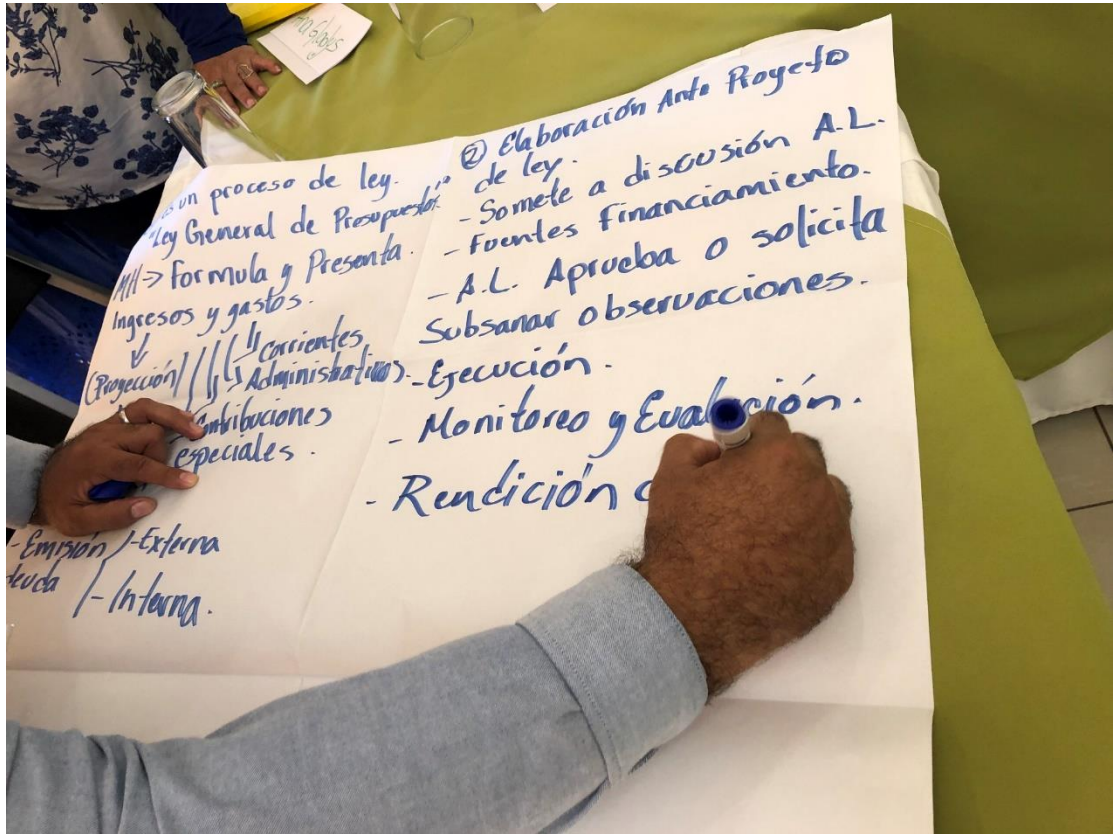 es un proceso de ley.
"Ley General de Presupuestos".
MH-> Formula y Presenta.
Ingresos y gastos.
(Proyección)
Corrientes
Administrativos.
Contribuciones
especiales.
- Emisión
deuda
- Externa
- Interna.
② Elaboración Ante Proyeto
de ley.
- Somete a discusión A.L.
- Fuentes Financiamiento.
- A.L. Aprueba o solicita
Subsanar observaciones.
- Ejecución.
- Monitoreo y Evaluación.
- Rendición